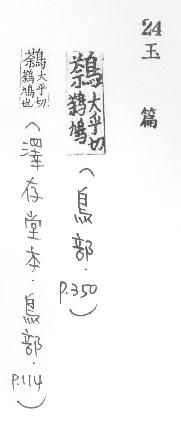 24
玉篇
鷋 大乎切
鳩
(鳥部.P.350)
鷋 大乎切
鳩也
(澤存堂本.鳥部.P.114)